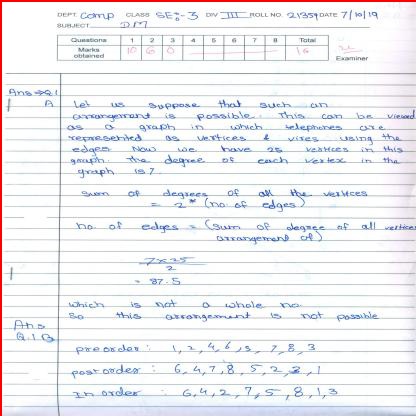 DEPT. Comp CLASS SE:-3 DIV III ROLL NO. 21359 DATE 7/10/19
SUBJECT DM
Questions 1 2 3 4 5 6 7 8 Total
Marks obtained 10 6 0 16
Examiner
Ans → Q.1
A Let us suppose that such an
arrangement is possible. This can be viewed
as a graph in which telephones are
represented as vertices & wires using the
edges Now we have 25 vertices in this
graph. The degree of each vertex in the
graph is 7.
Sum of degrees of all the vertices
= 2 * (no. of edges)
no. of edges = (sum of degree of all vertices
arrangement of)
7 x 25
2
= 87.5
which is not a whole no.
So this arrangement is not possible
Ans
Q.1 B
preorder : 1, 2, 4, 6, 5, 7, 8, 3
postorder : 6, 4, 7, 8, 5, 2, 3, 1
In order : 6, 4, 2, 7, 5, 8, 1, 3